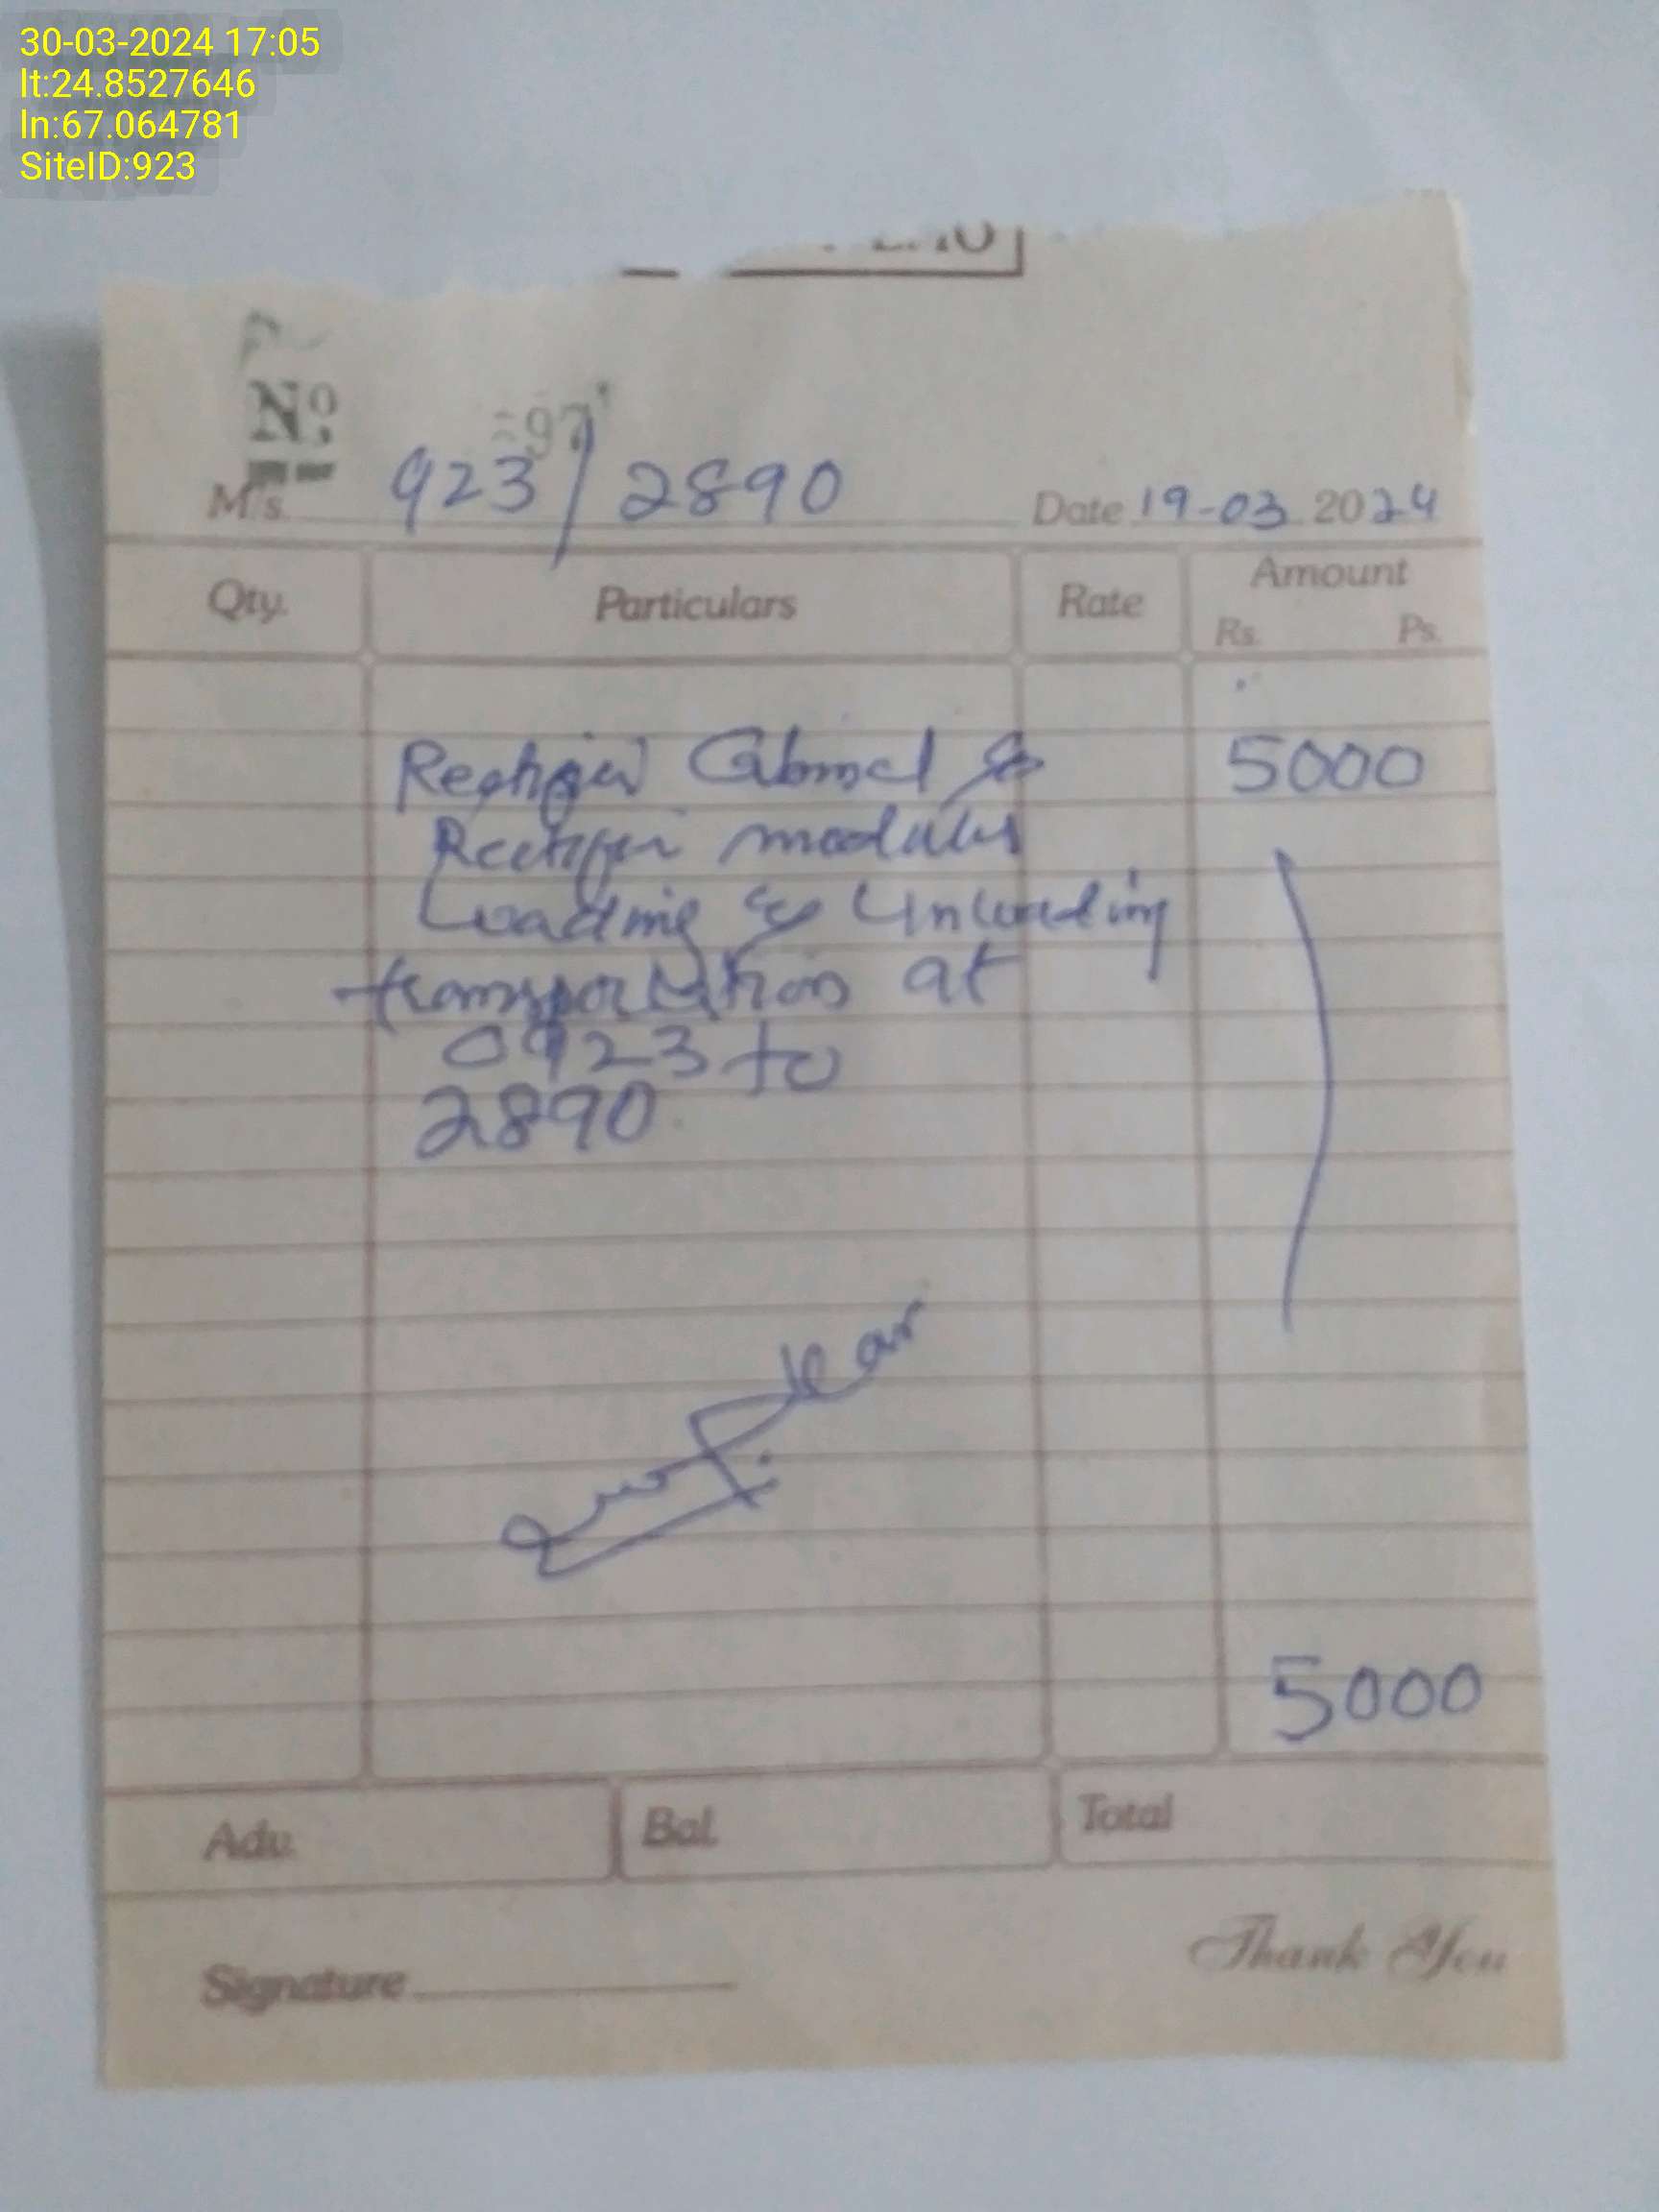 30-03-2024 17:05
lt:24.8527646
ln:67.064781
SiteID:923
No.
M/s. 923/2890 Date 19-03 2024
Qty. Particulars Rate Amount
Rs. Ps.
Rectifier Cabinet & 5000
Rectifier modules
Loading & Unloading
transportation at
0923 to
2890
5000
Adv. Bal. Total
Thank You
Signature